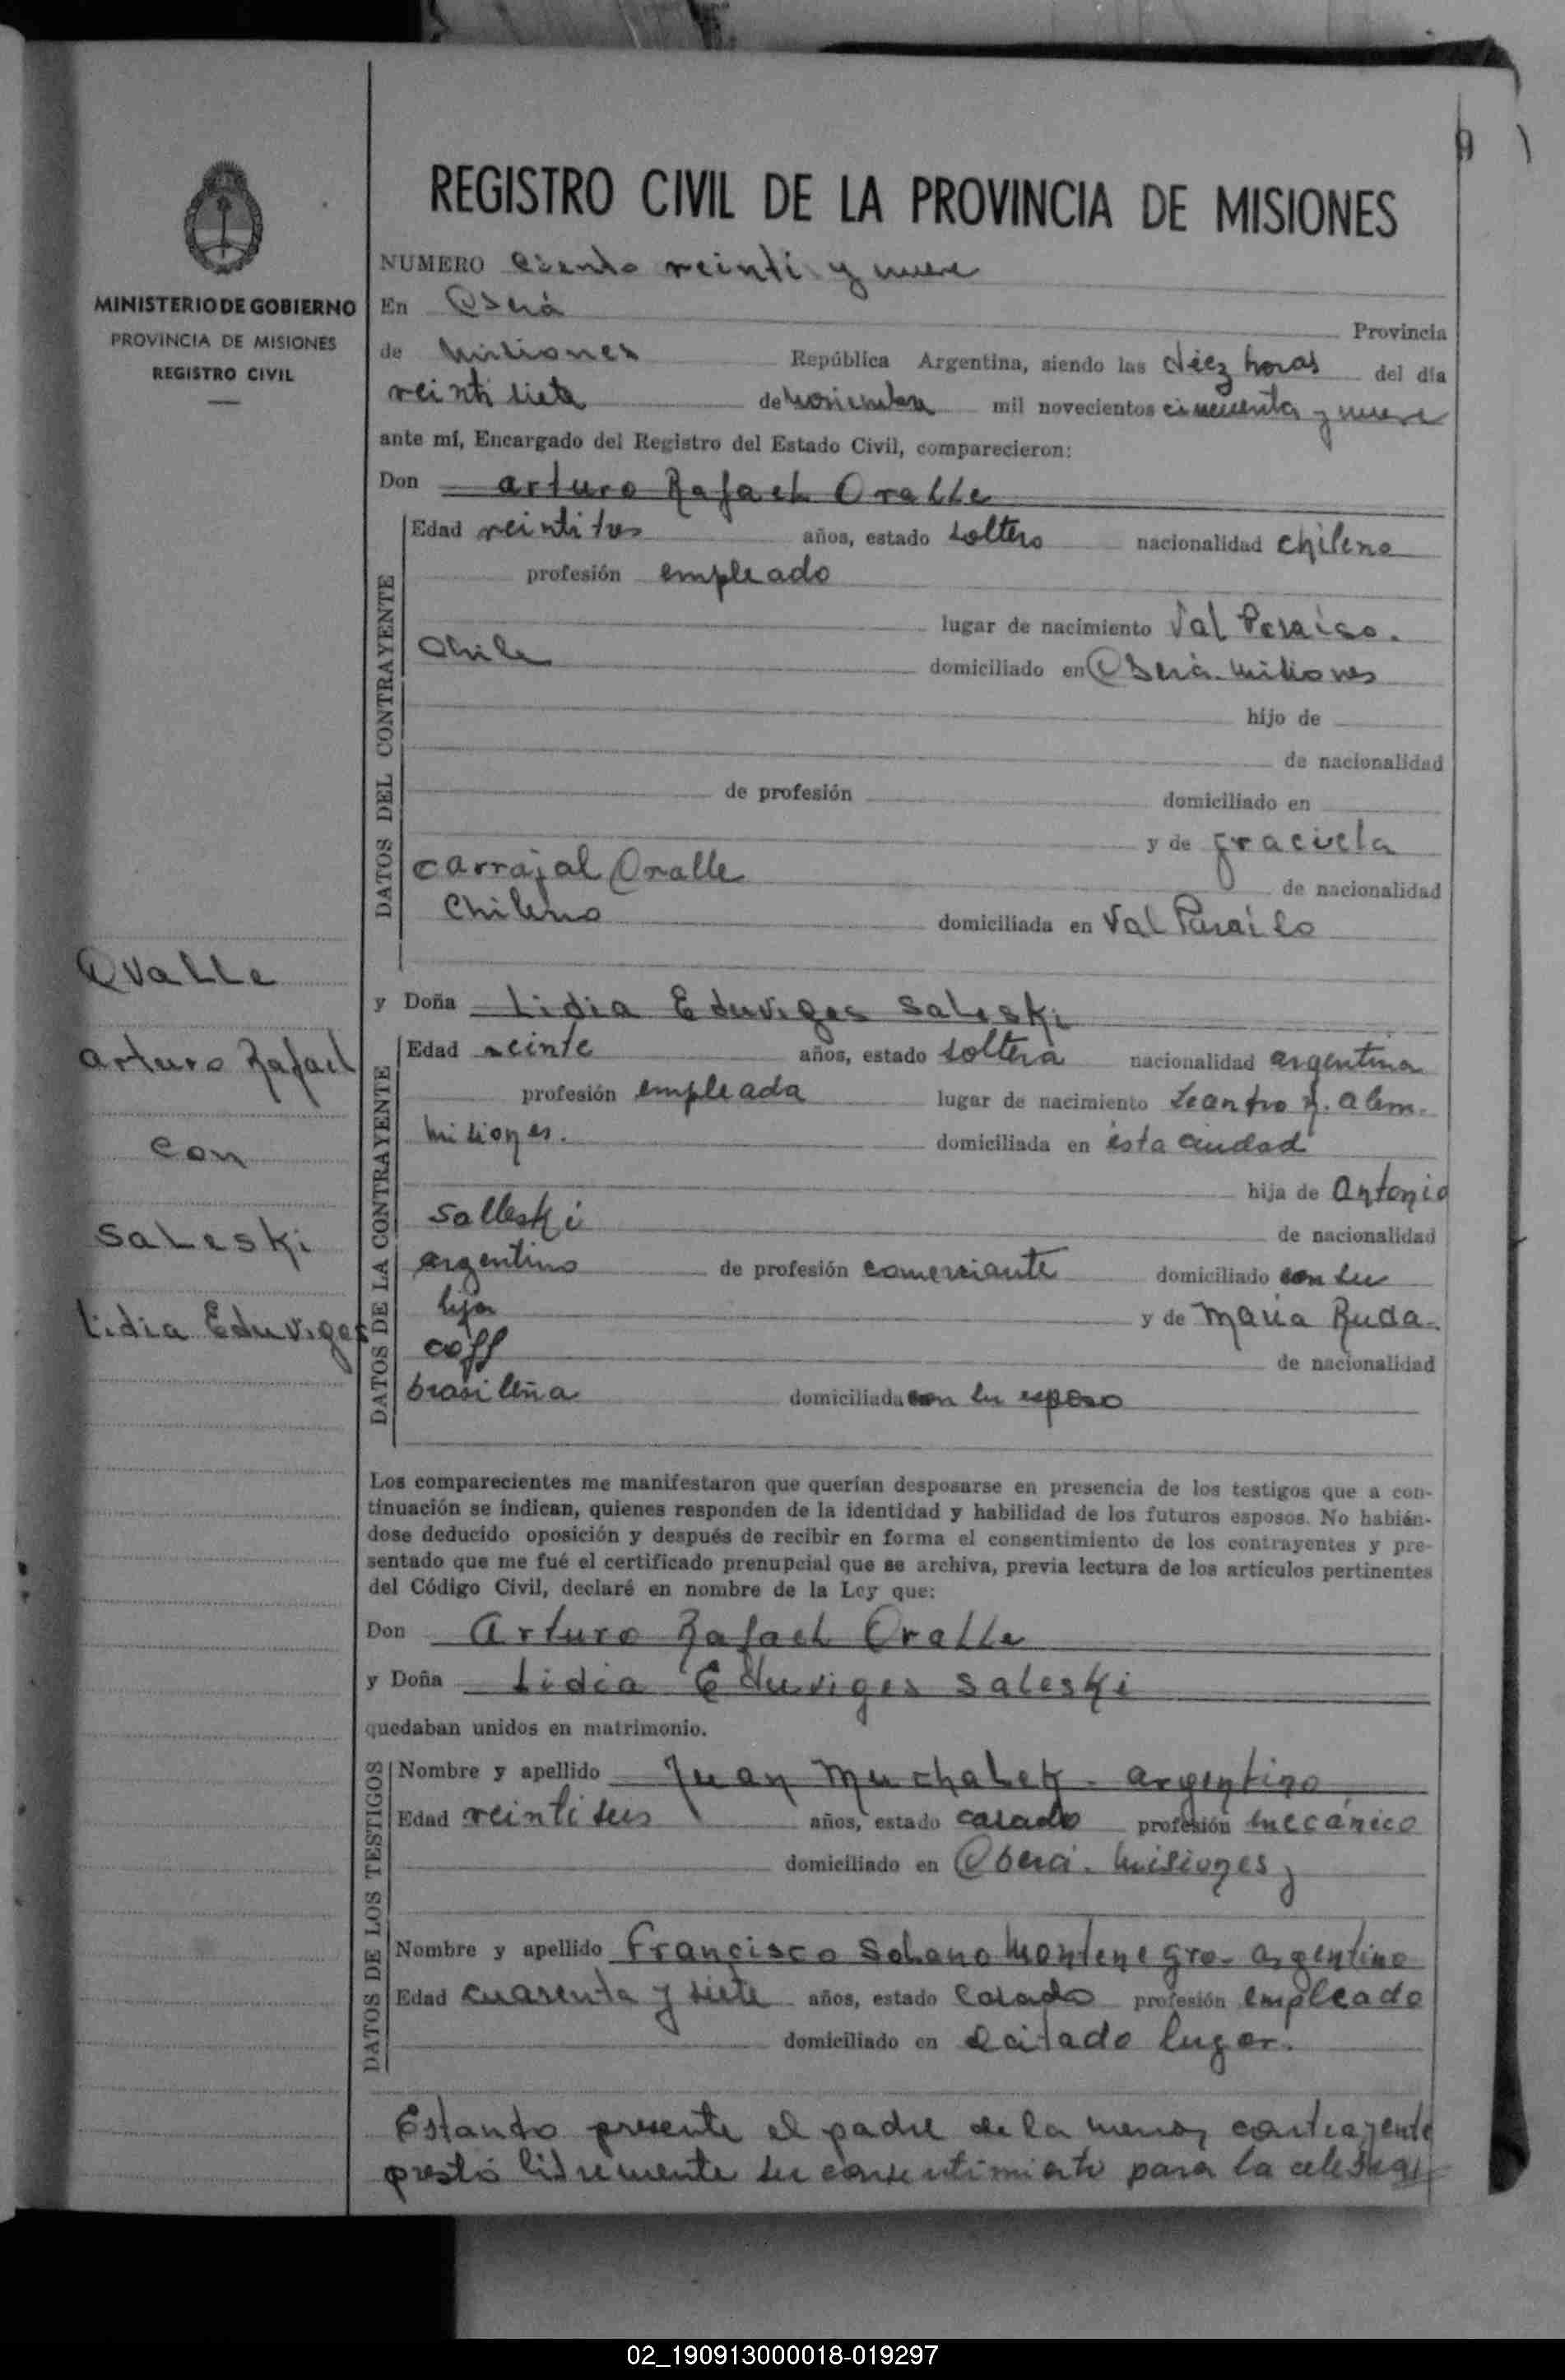 REGISTRO CIVIL DE LA PROVINCIA DE MISIONES
MINISTERIO DE GOBIERNO
PROVINCIA DE MISIONES
REGISTRO CIVIL
NUMERO Ciento veinti y nueve
En Oberá Provincia
de Misiones República Argentina, siendo las diez horas del día
veinti siete de noviembre mil novecientos cincuenta y nueve
ante mí, Encargado del Registro del Estado Civil, comparecieron:
Don Arturo Rafael Ovalle
DATOS DEL CONTRAYENTE
Edad veintitres años, estado soltero nacionalidad chileno
profesión empleado
lugar de nacimiento Val Paraiso.
Chile domiciliado en Oberá. Misiones
hijo de
de nacionalidad
de profesión domiciliado en
y de Graciela
Carvajal Ovalle de nacionalidad
Chileno domiciliada en Val Paraiso
Ovalle
Arturo Rafael
con
Saleski
Lidia Eduviges
y Doña Lidia Eduviges Saleski
DATOS DE LA CONTRAYENTE
Edad veinte años, estado soltera nacionalidad argentina
profesión empleada lugar de nacimiento Leandro N. Alem.
Misiones. domiciliada en ésta ciudad
hija de Antonio
Salleski de nacionalidad
argentino de profesión comerciante domiciliado con su
hija y de Maria Ruda-
coff de nacionalidad
brasileña domiciliada con su esposo
Los comparecientes me manifestaron que querían desposarse en presencia de los testigos que a con-
tinuación se indican, quienes responden de la identidad y habilidad de los futuros esposos. No habién-
dose deducido oposición y después de recibir en forma el consentimiento de los contrayentes y pre-
sentado que me fué el certificado prenupcial que se archiva, previa lectura de los artículos pertinentes
del Código Civil, declaré en nombre de la Ley que:
Don Arturo Rafael Ovalle
y Doña Lidia Eduviges Saleski
quedaban unidos en matrimonio.
DATOS DE LOS TESTIGOS
Nombre y apellido Juan Muchalek - argentino
Edad años, estado casado profesión mecánico
domiciliado en Oberá. Misiones
Nombre y apellido Francisco Solano Montenegro- argentino
Edad cuarenta y siete años, estado casado profesión empleado
domiciliado en citado lugar.
Estando presente el padre de la menor contrayente
prestó libremente su consentimiento para la celebra
02_190913000018-019297